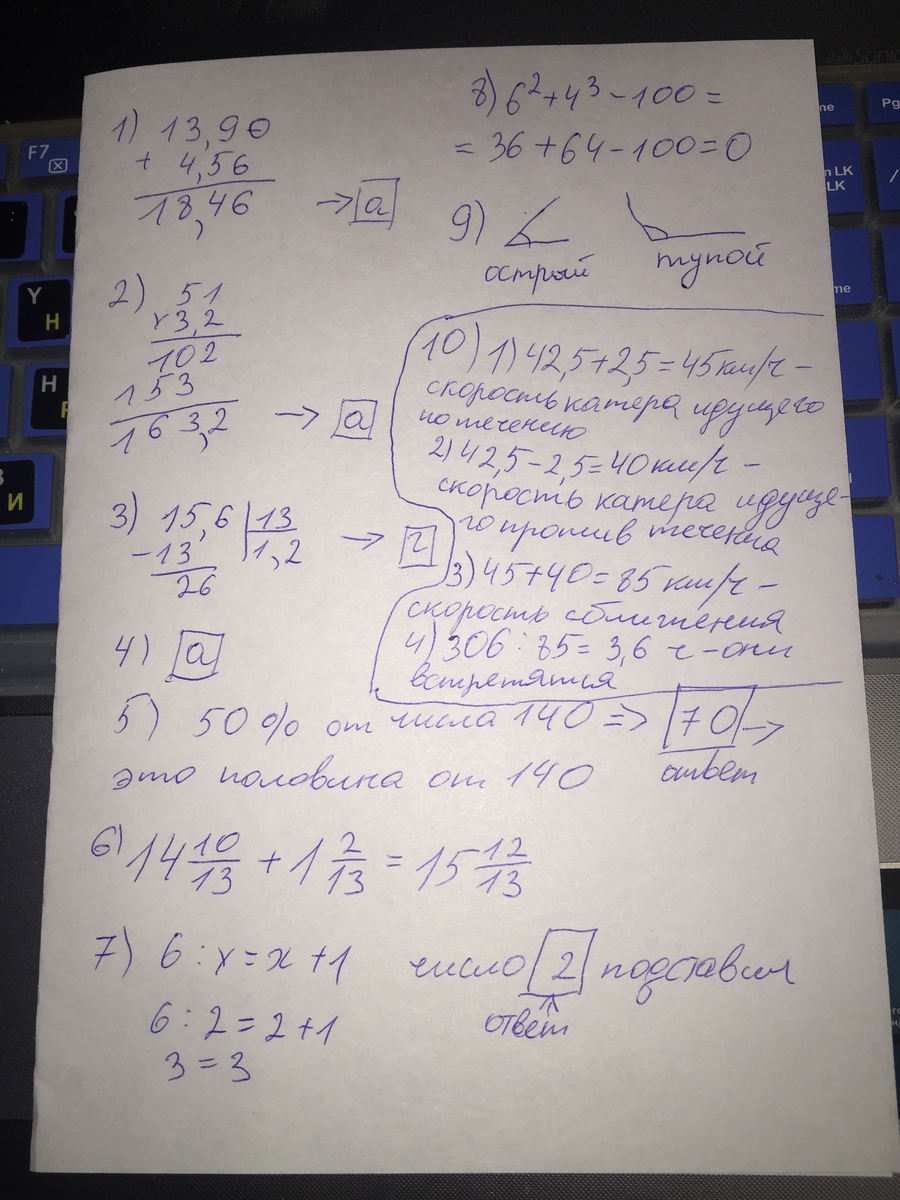 1) 13,90
+ 4,56
18,46 → а
2) 51
x 3,2
102
153
163,2 → а
3) 15,6 | 13
- 13 1,2 → г
26
4) а
5) 50% от числа 140 => 70 →
ответ
это половина от 140
6) 14 10/13 + 1 2/13 = 15 12/13
7) 6 : x = x + 1 число 2 подставим
ответ
6 : 2 = 2 + 1
3 = 3
8) 6² + 4³ - 100 =
= 36 + 64 - 100 = 0
9)
острый тупой
10) 1) 42,5 + 2,5 = 45 км/ч -
скорость катера идущего
по течению
2) 42,5 - 2,5 = 40 км/ч -
скорость катера идуще-
го против течения
3) 45 + 40 = 85 км/ч -
скорость сближения
4) 306 : 85 = 3,6 ч - они
встретятся
F7
Y
Н
H
И
Pg
LK
LK
me
/
Sonic